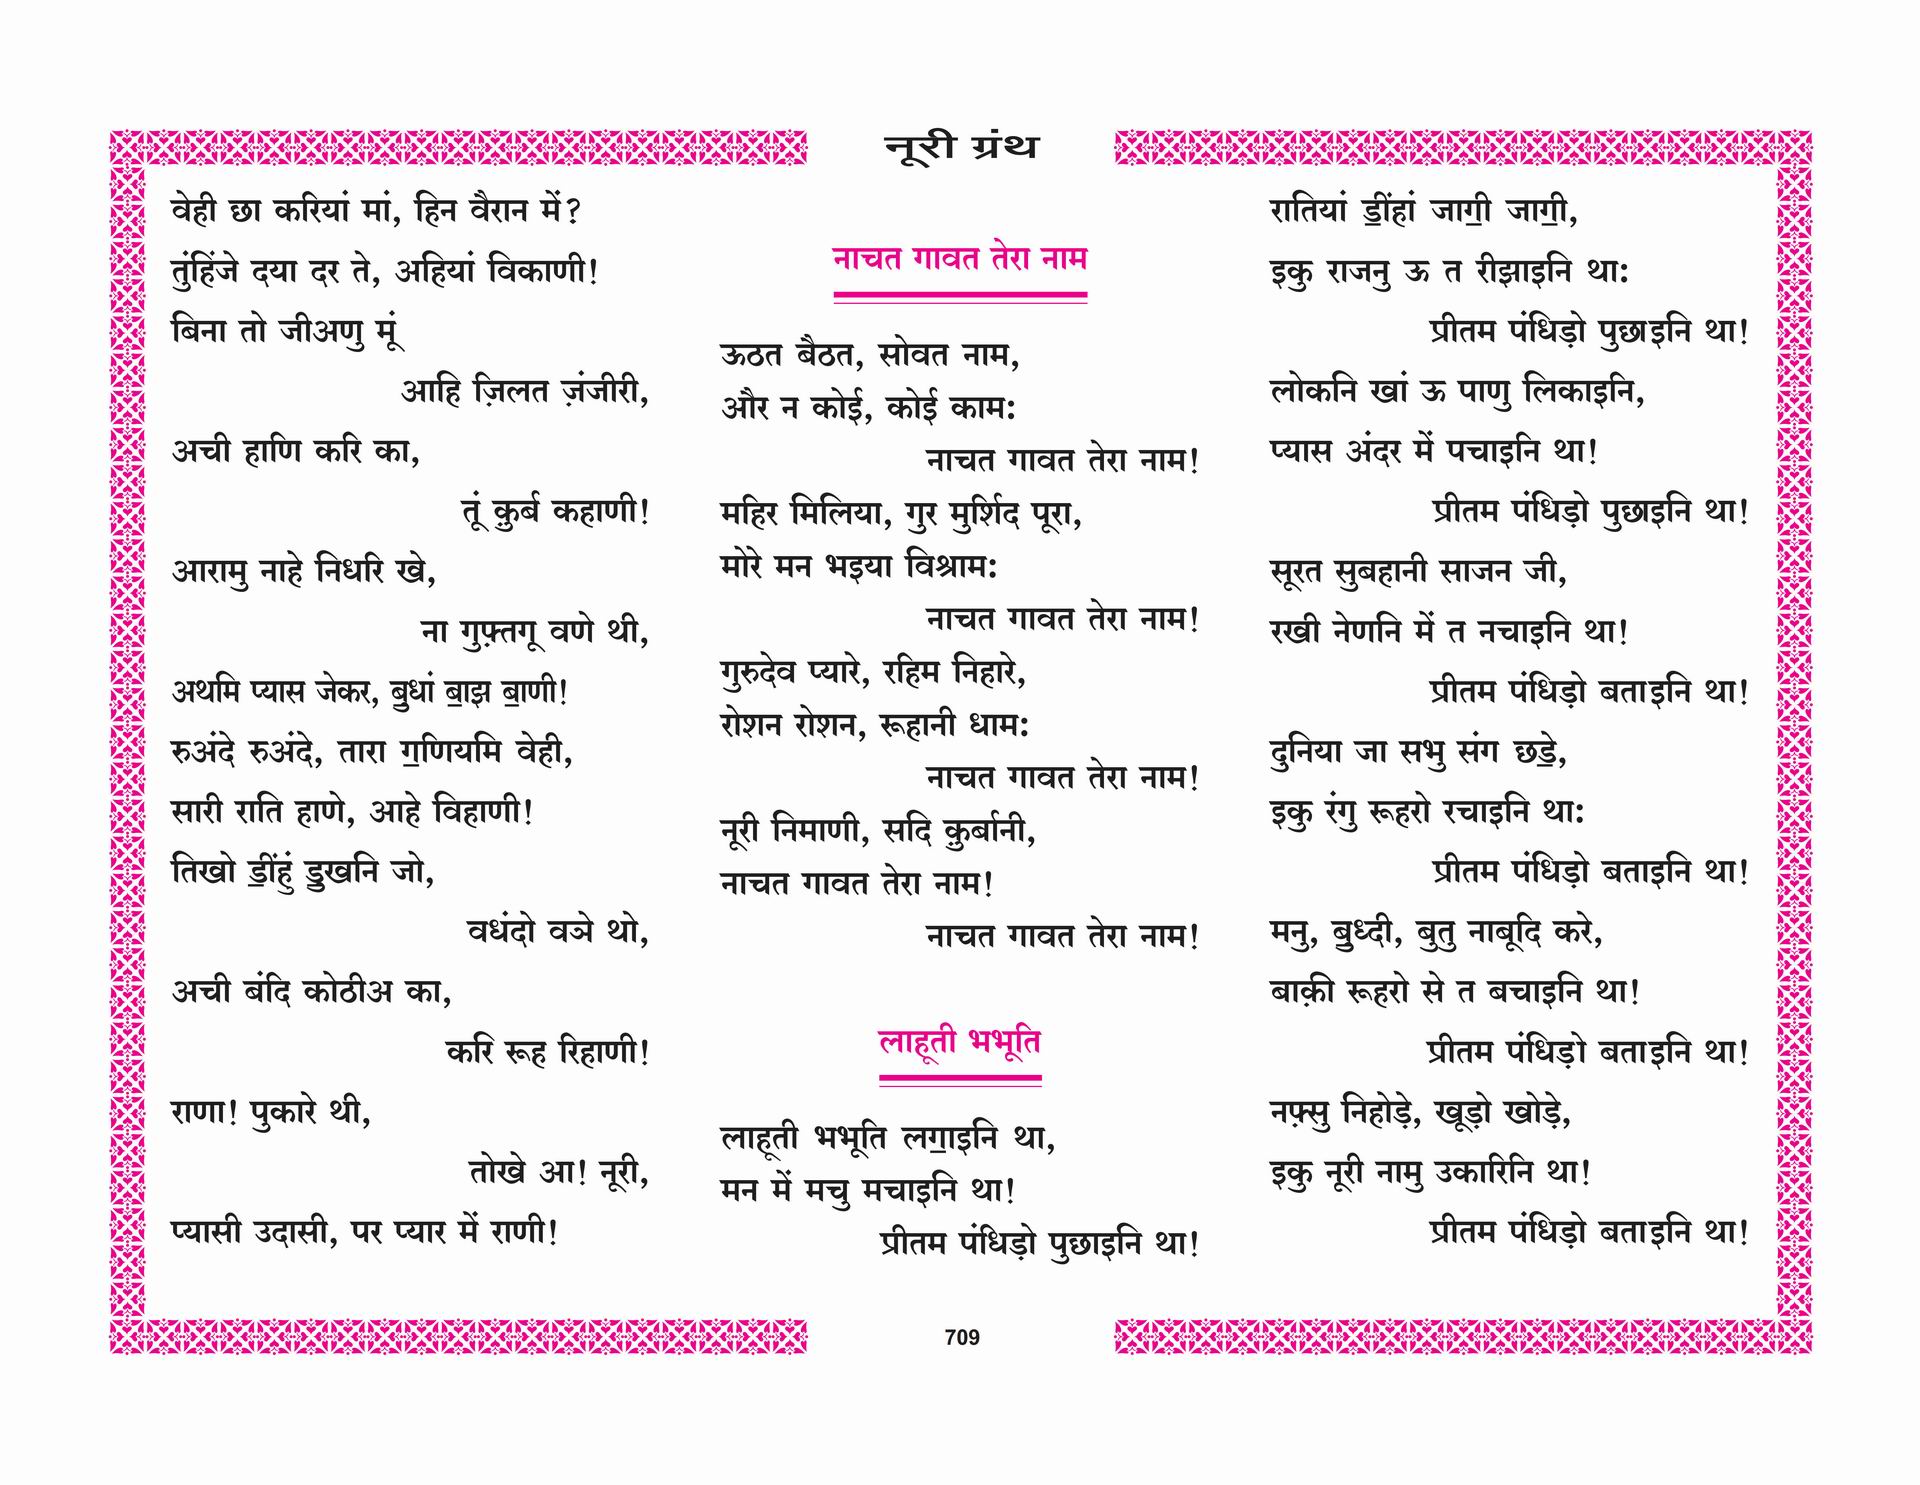 नूरी ग्रंथ
वेही छा करियां मां, हिन वैरान में?
तुंहिंजे दया दर ते, अहियां विकाणी!
बिना तो जीअणु मूं
आहि ज़िलत ज़ंजीरी,
अची हाणि करि का,
तूं क़ुर्ब कहाणी!
आरामु नाहे निधरि खे,
ना गुफ़्तगू वणे थी,
अथमि प्यास जेकर, ॿुधां ॿाझ ॿाणी!
रुअंदे रुअंदे, तारा ॻणियमि वेही,
सारी राति हाणे, आहे विहाणी!
तिखो ॾींहुं ॾुखनि जो,
वधंदो वञे थो,
अची बंदि कोठीअ का,
करि रूह रिहाणी!
राणा! पुकारे थी,
तोखे आ! नूरी,
प्यासी उदासी, पर प्यार में राणी!
नाचत गावत तेरा नाम
ऊठत बैठत, सोवत नाम,
और न कोई, कोई काम:
नाचत गावत तेरा नाम!
महिर मिलिया, गुर मुर्शिद पूरा,
मोरे मन भइया विश्राम:
नाचत गावत तेरा नाम!
गुरुदेव प्यारे, रहिम निहारे,
रोशन रोशन, रूहानी धाम:
नाचत गावत तेरा नाम!
नूरी निमाणी, सदि क़ुर्बानी,
नाचत गावत तेरा नाम!
नाचत गावत तेरा नाम!
लाहूती भभूति
लाहूती भभूति लॻाइनि था,
मन में मचु मचाइनि था!
प्रीतम पंधिड़ो पुछाइनि था!
रातियां ॾींहां जाॻी जाॻी,
इकु राजनु ऊ त रीझाइनि था:
प्रीतम पंधिड़ो पुछाइनि था!
लोकनि खां ऊ पाणु लिकाइनि,
प्यास अंदर में पचाइनि था!
प्रीतम पंधिड़ो पुछाइनि था!
सूरत सुबहानी साजन जी,
रखी नेणनि में त नचाइनि था!
प्रीतम पंधिड़ो बताइनि था!
दुनिया जा सभु संग छॾे,
इकु रंगु रूहरो रचाइनि था:
प्रीतम पंधिड़ो बताइनि था!
मनु, ॿुध्दी, बुतु नाबूदि करे,
बाक़ी रूहरो से त बचाइनि था!
प्रीतम पंधिड़ो बताइनि था!
नफ़्सु निहोड़े, खूड़ो खोड़े,
इकु नूरी नामु उकारिनि था!
प्रीतम पंधिड़ो बताइनि था!
709